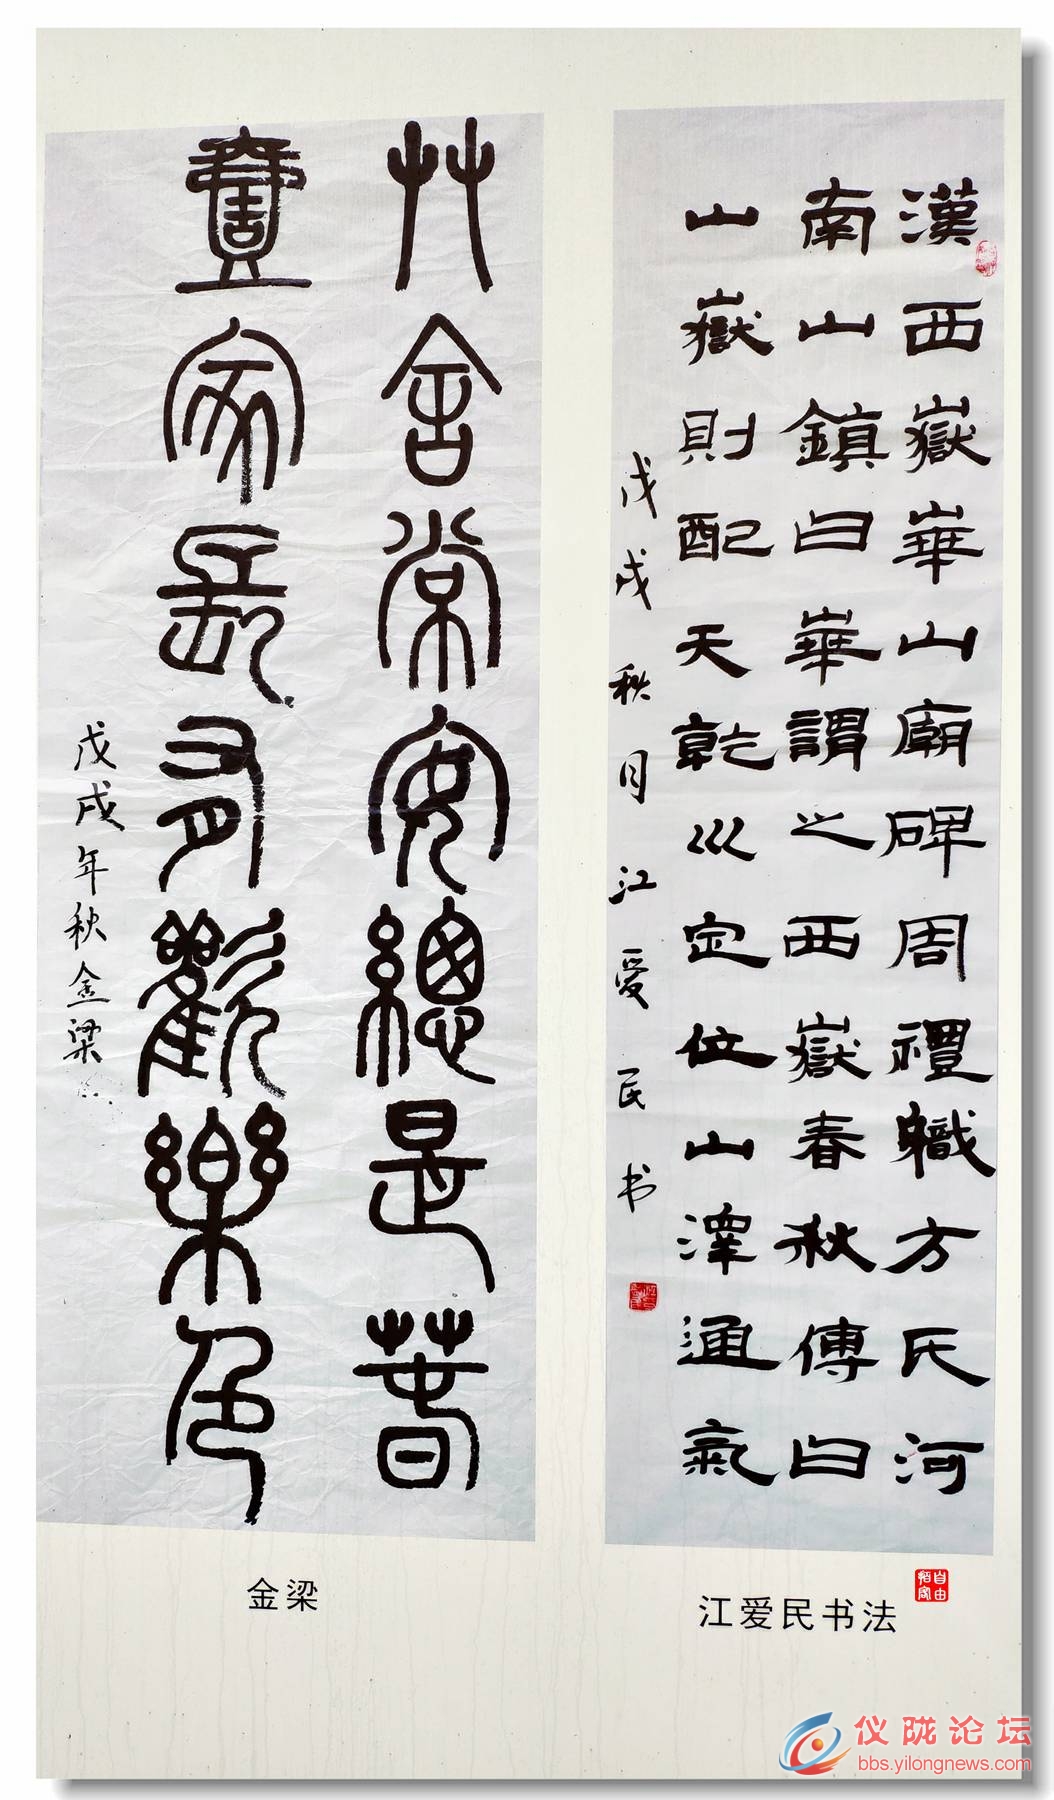 漢西嶽華山廟碑周禮職方氏河
南山鎮曰華謂之西嶽春秋傳曰
山嶽則配天乾巛定位山澤通氣
戊戌秋月江爱民书
艸舍常安總是春
壹家長有歡樂色
戊戌年秋金梁
金梁
江爱民书法
自由拍客
仪陇论坛
bbs.yilongnews.com